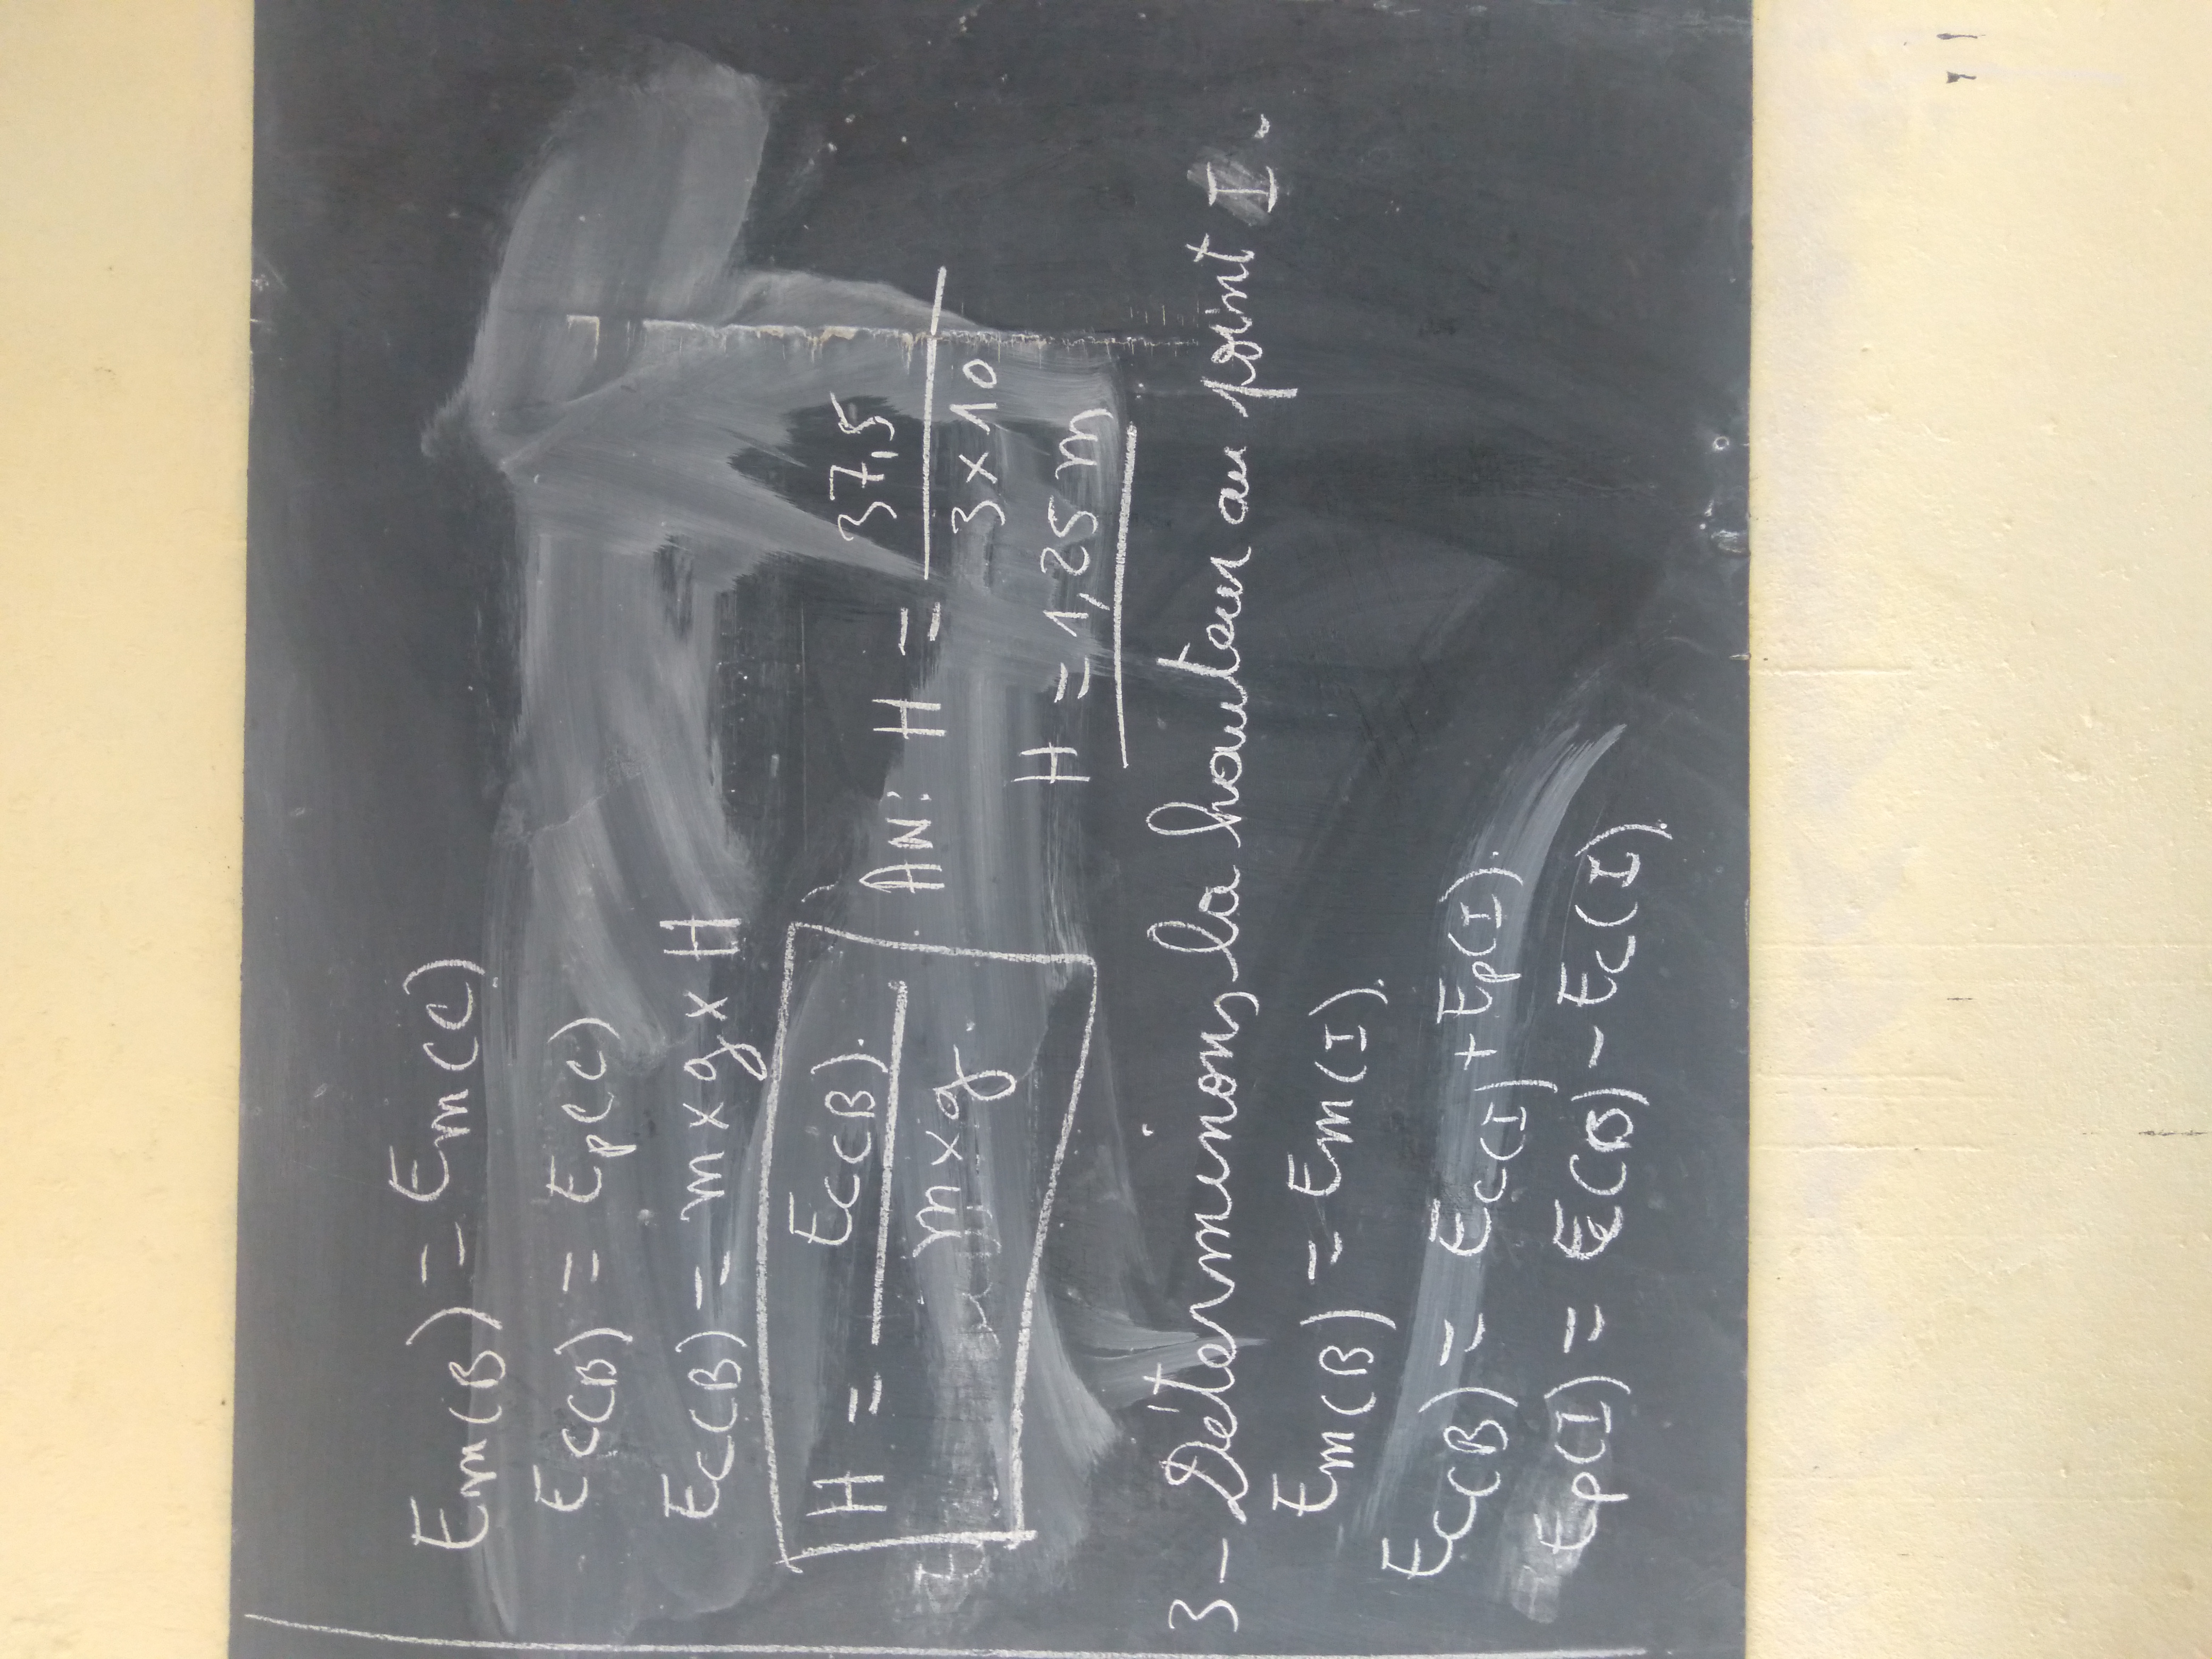 Em(B) = Em(C)
Ec(B) = Ep(C)
Ec(B) = m x g x H
H = Ec(B). / m x g. AN: H = 37,5 / 3 x 10
H = 1,25 m
3- Déterminons la hauteur au point I.
Em(B) = Em(I).
Ec(B) = Ec(I) + Ep(I).
Ep(I) = Ec(B) - Ec(I).